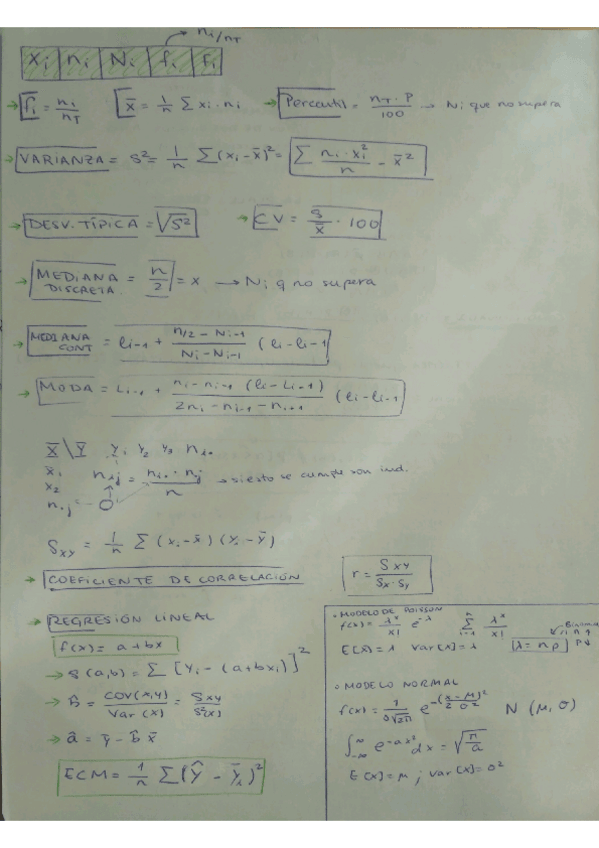 ni/nT
Xi ni Ni fi Fi
fi = ni/nT   x̄ = 1/n Σ xi · ni   → Percentil = nT · P / 100 → Ni que no supera
→ VARIANZA = S² = 1/n Σ (xi - x̄)² = Σ ni · xi² / n - x̄²
→ DESV. TÍPICA = √S²   → CV = S/x̄ · 100
→ MEDIANA DISCRETA = n/2 = x → Ni q no supera
→ MEDIANA CONT = li-1 + (n/2 - Ni-1)/(Ni - Ni-1) (li - li-1
→ MODA = Li-1 + ni - ni-1 (li - Li-1) / 2ni - ni-1 - ni+1 (li - li-1
X \ Y   Y1 Y2 Y3 ni.
x1   nij = ni. · nj / n → si esto se cumple son ind.
x2
n.j
Sxy = 1/n Σ (xi - x̄) (Yi - Ȳ)
→ COEFICIENTE DE CORRELACIÓN   r = Sxy / Sx · Sy
→ REGRESIÓN LINEAL
f(x) = a + bx
→ S(a,b) = Σ [Yi - (a + bxi)]²
→ b̂ = COV(x,y) / Var(X) = Sxy / S²(x)
→ â = ȳ - b̂ x̄
ECM = 1/n Σ (Ŷ - Ȳi)²
· MODELO DE POISSON
f(x) = λˣ/x! e^-λ   Σ λˣ/x!
E[X] = λ   Var[X] = λ   [λ = np]
· MODELO NORMAL
f(x) = 1/σ√2π e^-(x-μ)²/2σ²   N (μ, σ)
∫-∞^∞ e^-ax² dx = √π/a
E[X] = μ ; Var[X] = σ²